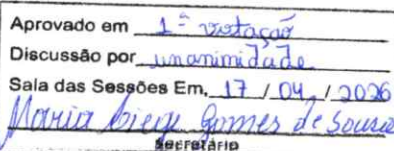 Aprovado em 1ª votação
Discussão por unanimidade
Sala das Sessões Em, 17 / 04 / 2026
Maria Gomes de Sousa
Secretário